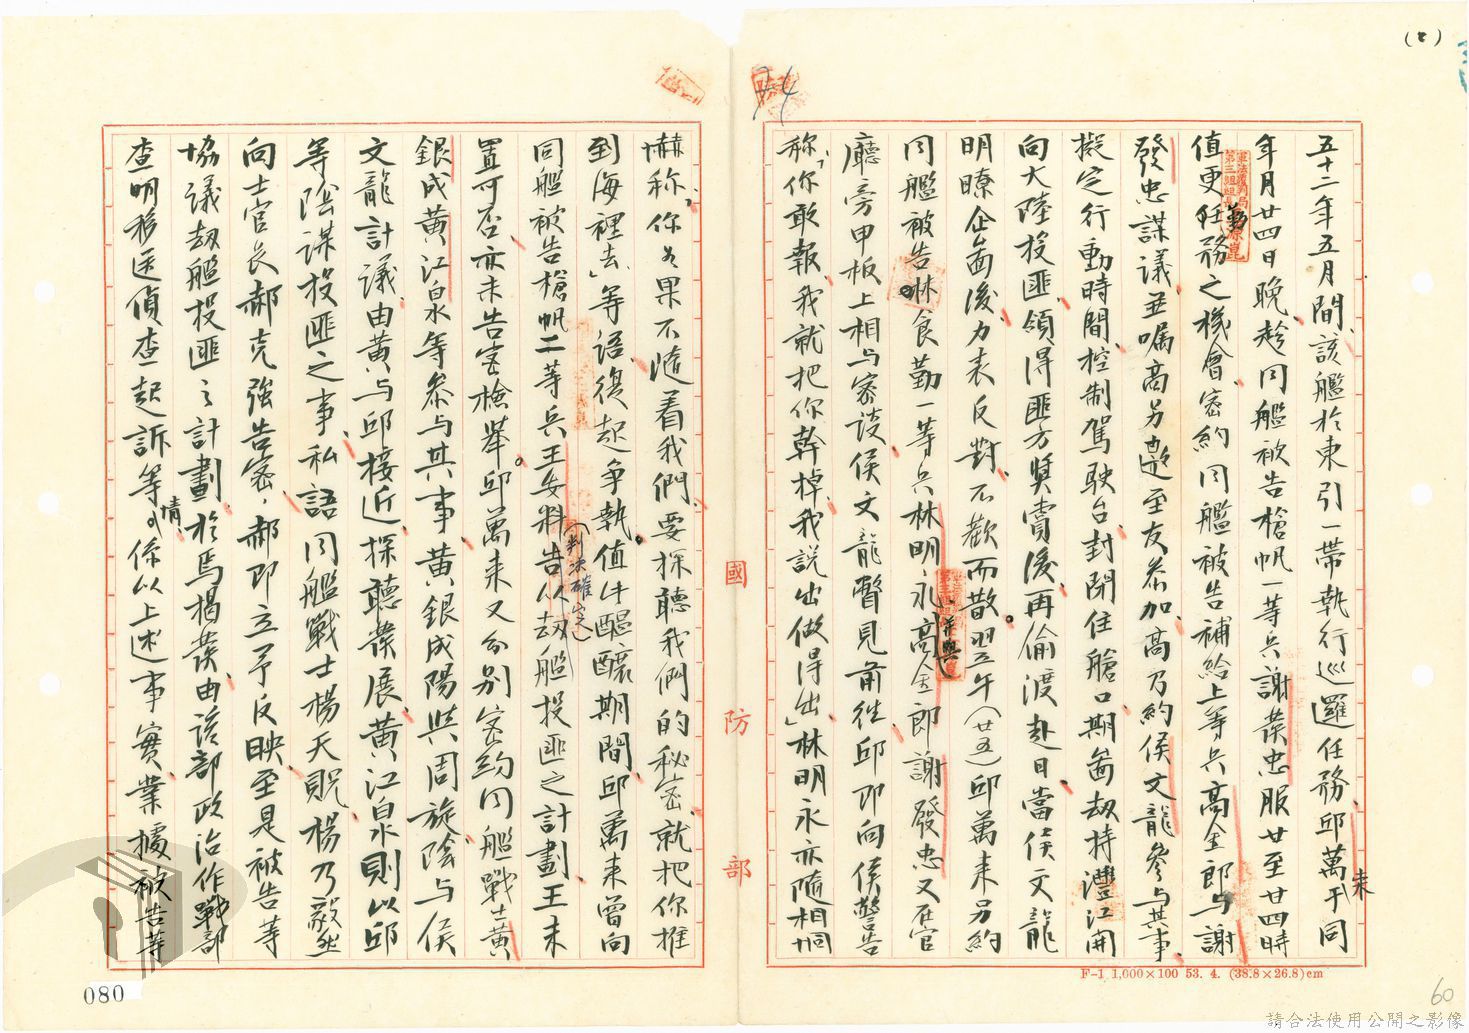 (七)
74
五十二年五月間、該艦於東引一帶執行巡邏任務、邱萬來于同
年月廿四日晚、趁同艦被告槍帆一等兵謝發忠服廿至廿四時
值更任務之機會、密約同艦被告補給上等兵高金郎與謝
發忠謀議、並囑高另邀至友參加、高乃約侯文龍參與其事、
擬定行動時間、控制駕駛台、封閉住艙口、期圖劫持灃江開
向大陸投匪、領得匪方獎賞後、再偷渡赴日、當侯文龍
明瞭企圖後、力表反對、不歡而散。翌午(廿五)邱萬來另約
同艦被告淋食勤一等兵林明永、並與高金郎謝發忠又在官
廳旁甲板上相與密談、侯文龍瞥見前往、邱即向侯警告
稱、「你敢報、我就把你幹掉、我說出做得出」林明永亦隨相恫
嚇稱、「你如果不隨着我們、要探聽我們的秘密、就把你推
到海裡去」等語、復起爭執。值牛醞釀期間、邱萬來曾向
同艦被告槍帆二等兵王安料(判決確定)告以劫艦投匪之計劃、王未
置可否、亦未告密檢舉。邱萬來又分別密約同艦戰士黃
銀成黃江泉等參與其事、黃銀成陽與周旋、陰與侯
文龍計議、由黃與邱接近、探聽發展、黃江泉則以邱
等陰謀投匪之事、私語同艦戰士楊天貺、楊乃毅然
向士官長郝克強告密、郝即立予反映、至是被告等
協議劫艦投匪之計劃、於焉揭發、由該部政治作戰部
查明移送偵查起訴等情。
係以上述事實、業據被告等
國防部
F-1 1,000×100 53. 4. (38.8×26.8)cm
080
60
請合法使用公開之影像